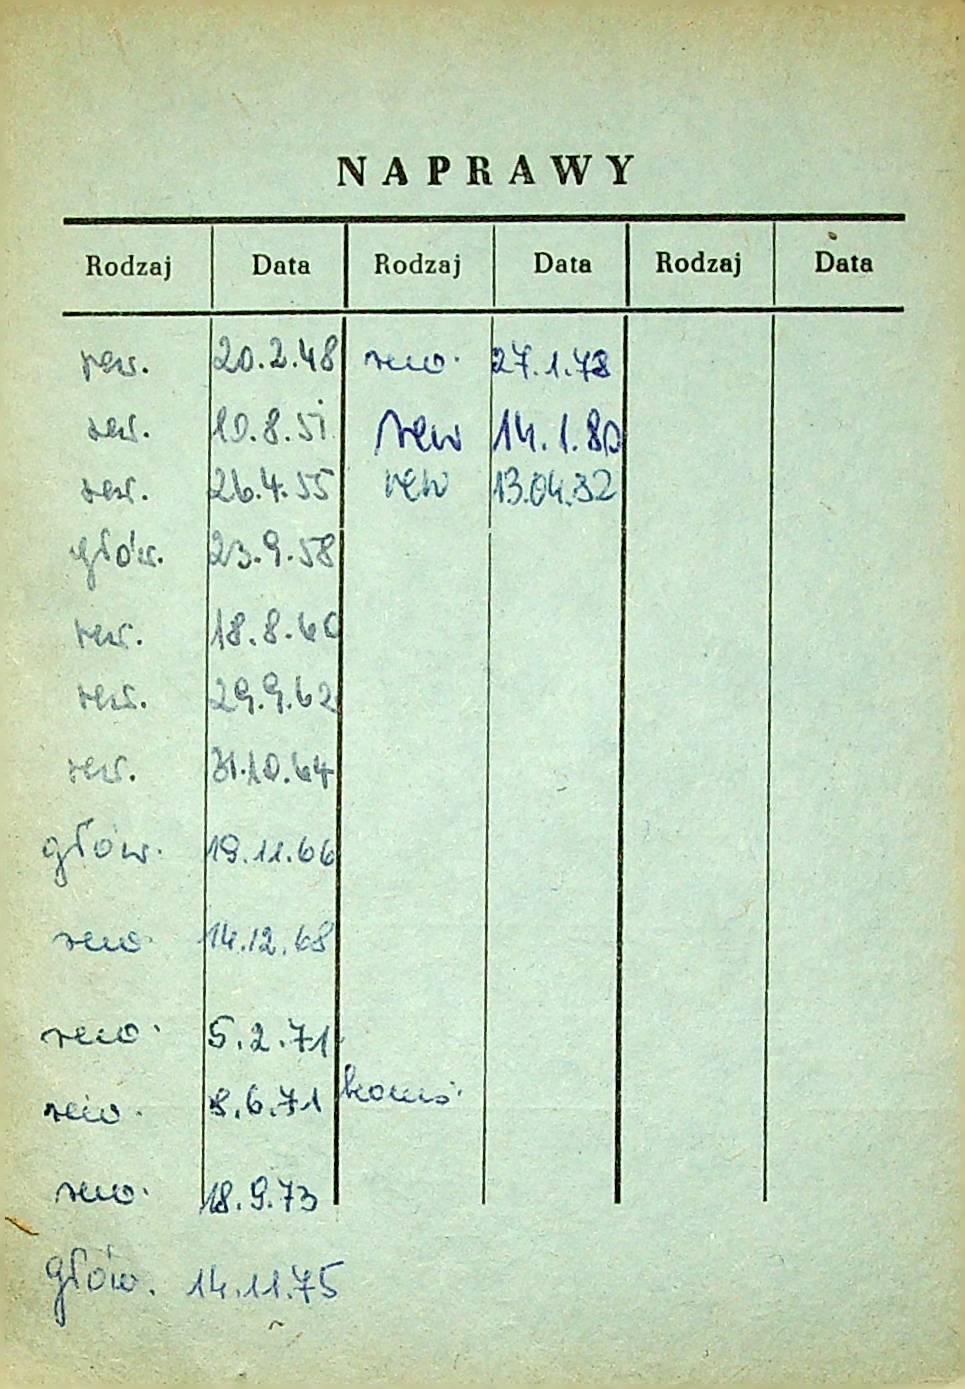 NAPRAWY
Rodzaj Data Rodzaj Data Rodzaj Data
rew. 20.2.48 rew. 27.1.78
rew. 10.8.51 rew 14.1.80
rew. 26.4.55 rew 13.04.82
głów. 23.9.58
rew. 18.8.60
rew. 29.9.62
rew. 31.10.64
głów. 19.11.66
rew. 14.12.68
rew. 5.2.71
rew. 8.6.71
rew. 18.9.73
głów. 14.11.75